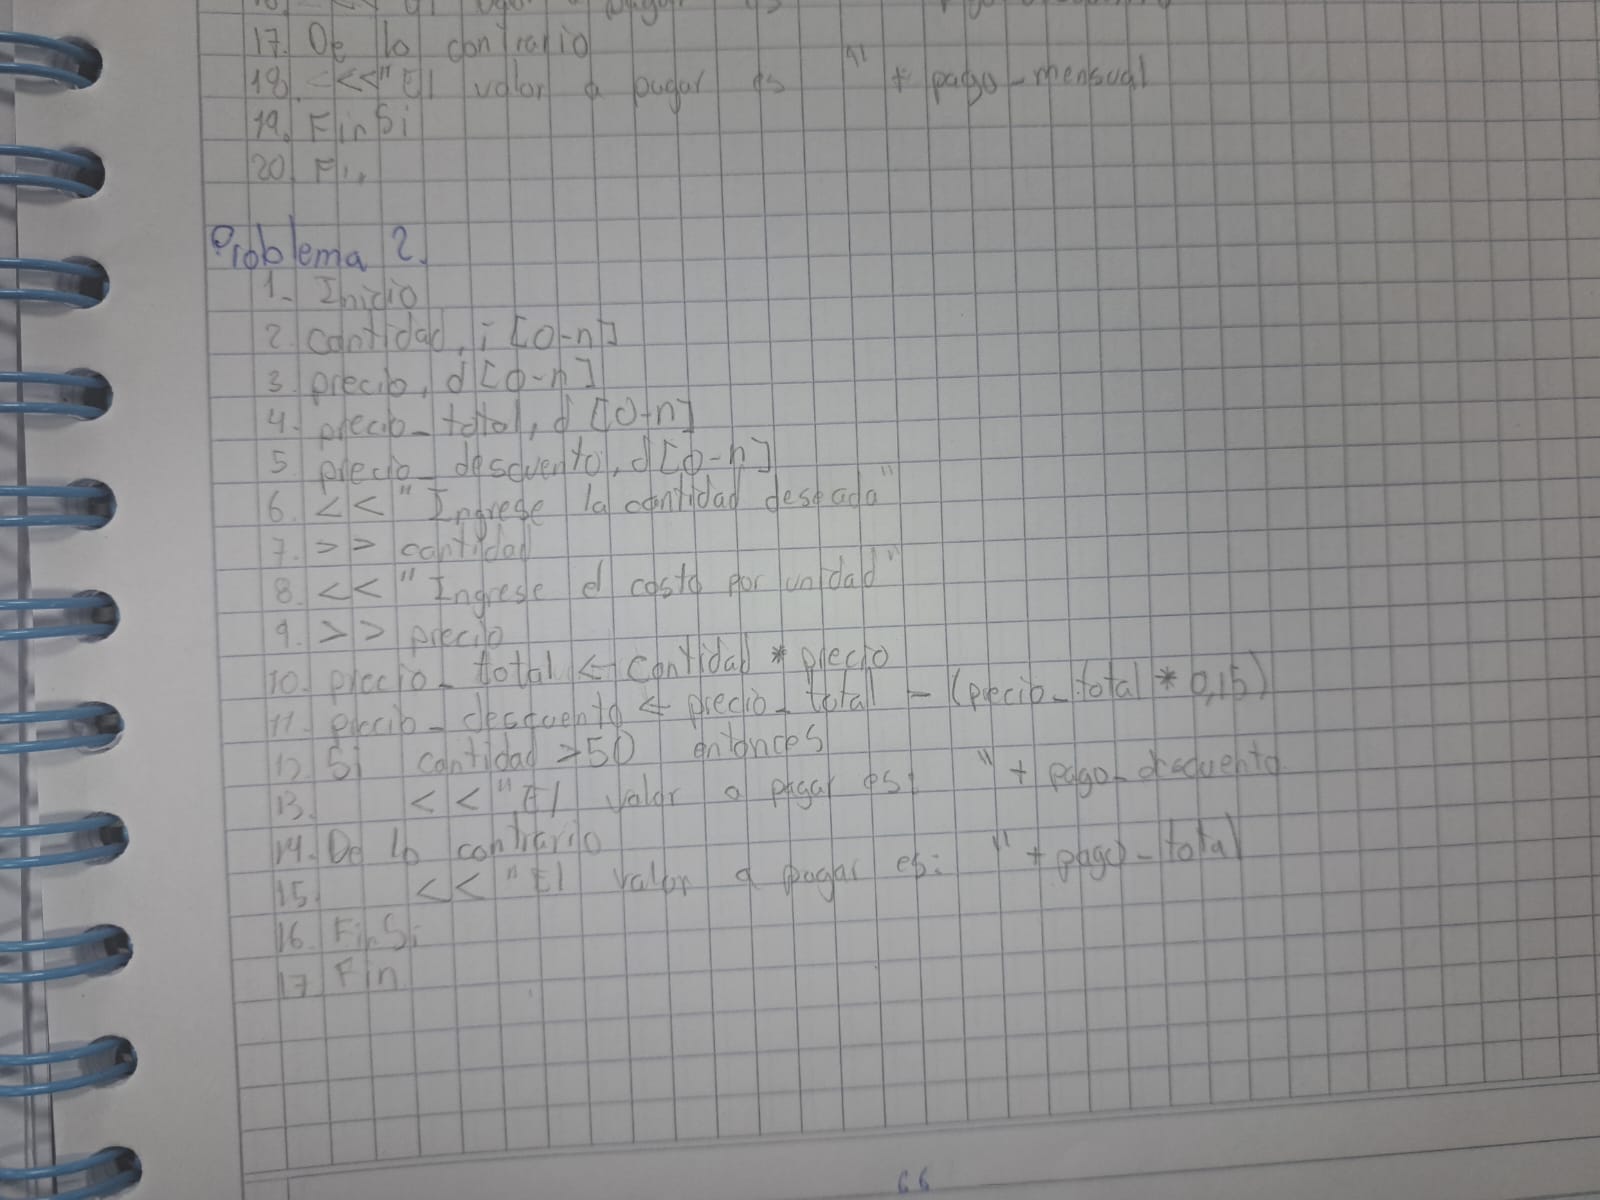 a pagar es
17. De lo contrario
18. <<"El valor a pagar es " + pago_mensual
19. FinSi
20. Fin
Problema 2.
1. Inicio
2. cantidad, i [0-n]
3. precio, d [0-n]
4. precio_total, d [0-n]
5. precio_descuento, d [0-n]
6. << "Ingrese la cantidad deseada"
7. >> cantidad
8. << "Ingrese el costo por unidad"
9. >> precio
10. precio_total ← cantidad * precio
11. precio_descuento ← precio_total - (precio_total * 0,15)
12. Si cantidad >50 entonces
13. << "El valor a pagar es: " + pago_descuento
14. De lo contrario
15. << "El valor a pagar es: " + pago_total
16. FinSi
17 Fin
66